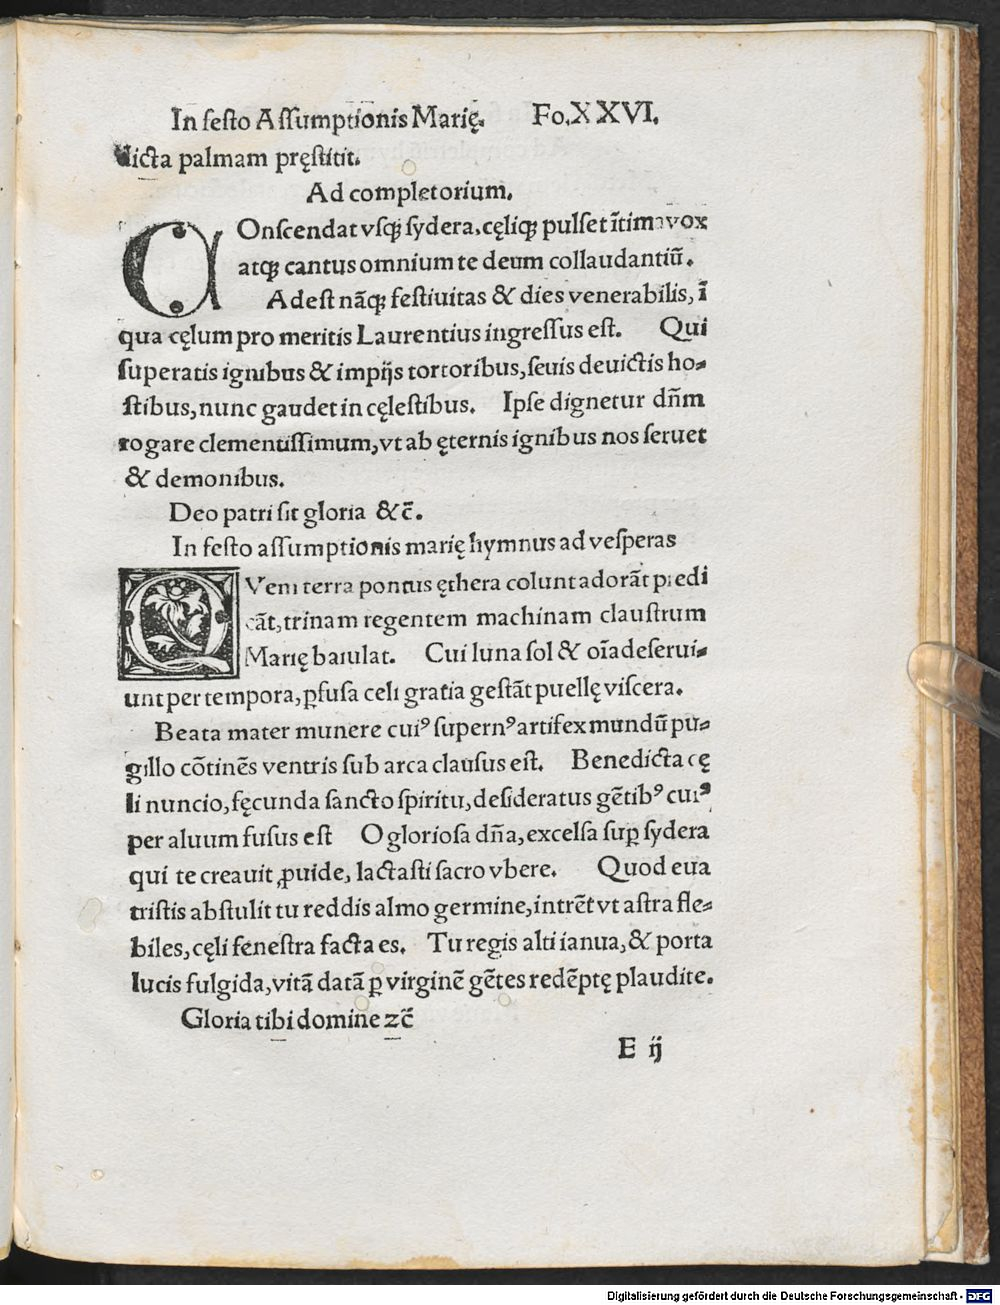 In festo Assumptionis Marię. Fo.XXVI.
dicta palmam pręstitit.
Ad completorium.
COnscendat vsqꝫ sydera, cęliqꝫ pulset ītima vox
atqꝫ cantus omnium te deum collaudantiū.
Adest nāqꝫ festiuitas & dies venerabilis, ī
qua cęlum pro meritis Laurentius ingressus est. Qui
superatis ignibus & impijs tortoribus, seuis deuictis ho-
stibus, nunc gaudet in cęlestibus. Ipse dignetur dn̄m
rogare clementissimum, vt ab ęternis ignibus nos seruet
& demonibus.
Deo patri sit gloria &c̄.
In festo assumptionis marię hymnus ad vesperas
QVem terra pontus ęthera colunt adorāt predi
cāt, trinam regentem machinam claustrum
Marię baiulat. Cui luna sol & oīa deserui-
unt per tempora, ꝑfusa celi gratia gestāt puellę viscera.
Beata mater munere cuiꝰ supernꝰ artifex mundū pu-
gillo cōtinēs ventris sub arca clausus est. Benedicta cę
li nuncio, fęcunda sancto spiritu, desideratus gētibꝰ cuiꝰ
per aluum fusus est O gloriosa dn̄a, excelsa suꝑ sydera
qui te creauit ꝓuide, lactasti sacro vbere. Quod eua
tristis abstulit tu reddis almo germine, intrēt vt astra fle-
biles, cęli fenestra facta es. Tu regis alti ianua, & porta
lucis fulgida, vitā datā ꝑ virginē gētes redēptę plaudite.
Gloria tibi domine zc̄
E ij
Digitalisierung gefördert durch die Deutsche Forschungsgemeinschaft - DFG